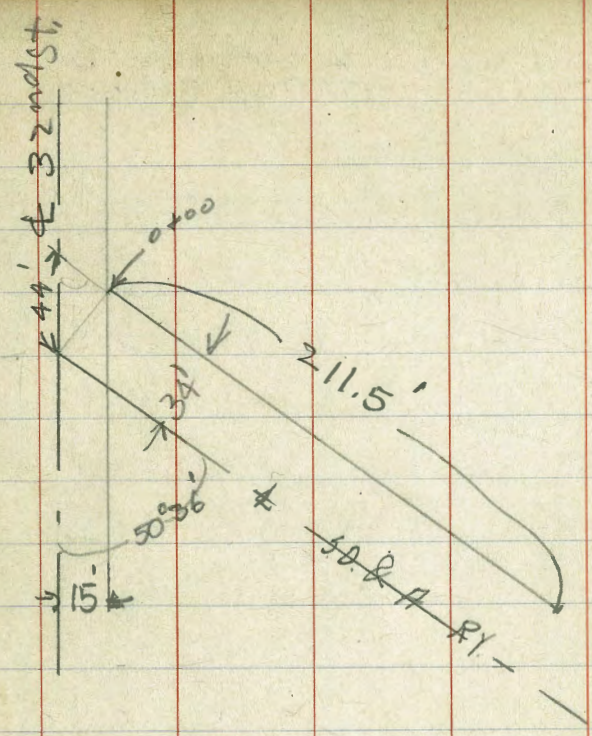 ℄ 32nd St.
44'
0+00
211.5'
34'
50°36'
15'
℄ S.D. & A RY.